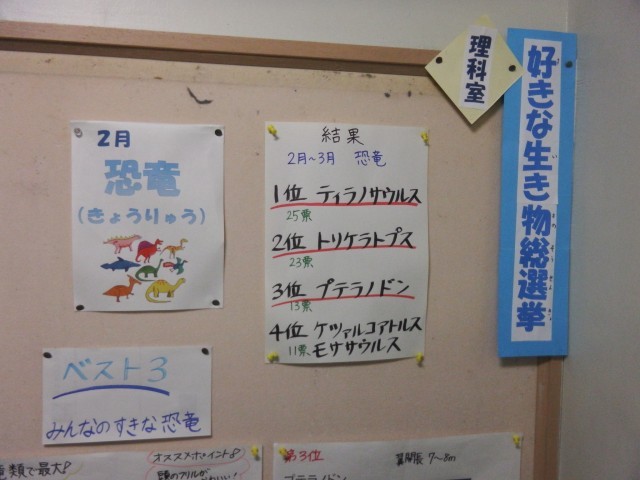 好きな生き物総選挙
理科室
2月
恐竜
(きょうりゅう)
結果
2月~3月 恐竜
1位 ティラノサウルス
25票
2位 トリケラトプス
23票
3位 プテラノドン
13票
4位 ケツァルコアトルス
11票 モササウルス
ベスト3
みんなのすきな恐竜
種類で最大!
オススメポイント!
頭のフリルが
第3位
翼開長 7~8m
プテラノドン